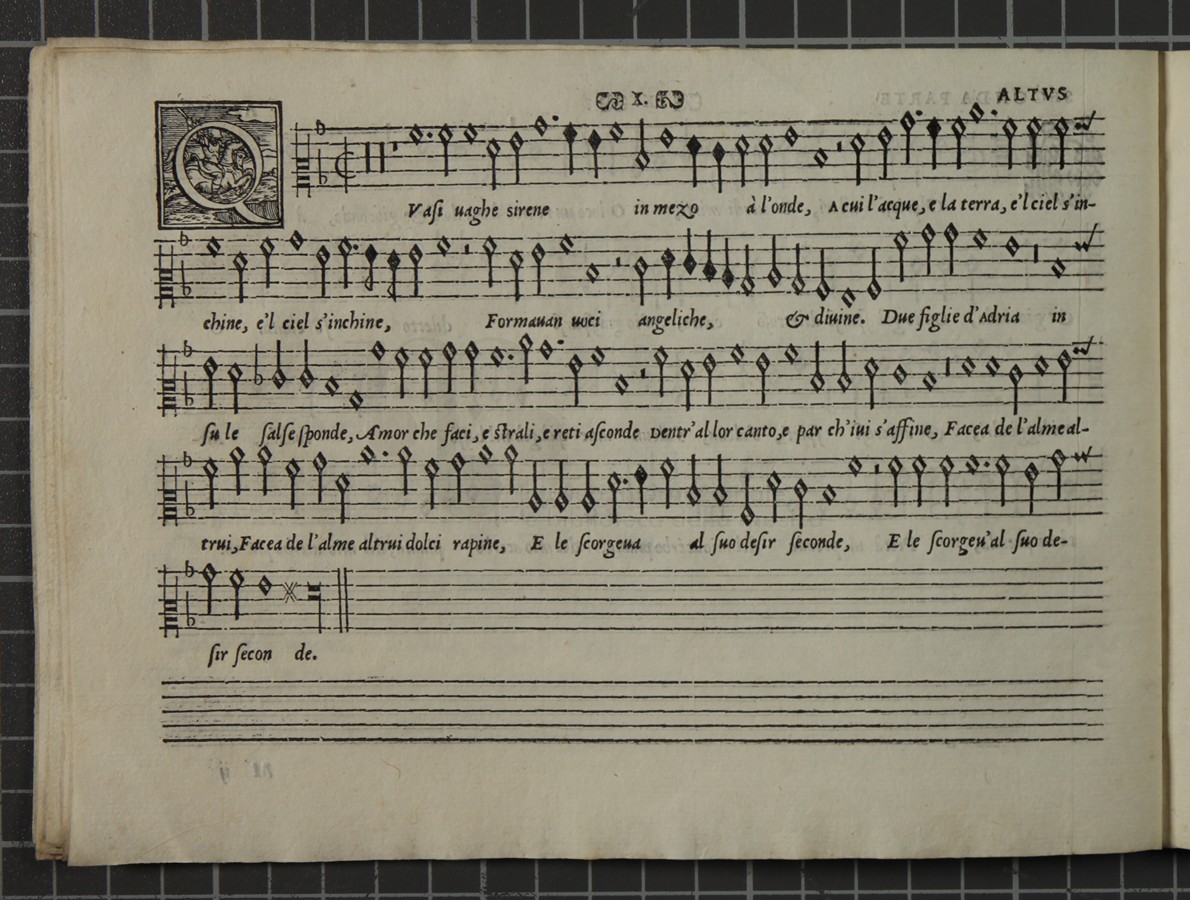 X.
ALTVS
QVasi uaghe sirene in mezo à l'onde, A cui l'acque, e la terra, e'l ciel s'in-
chine, e'l ciel s'inchine, Formauan uoci angeliche, & diuine. Due figlie d'Adria in
su le salse sponde, Amor che faci, e strali, e reti asconde Dentr'al lor canto, e par ch'iui s'affine, Facea de l'alme al-
trui, Facea de l'alme altrui dolci rapine, E le scorgeua al suo desir seconde, E le scorgeu'al suo de-
sir secon de.